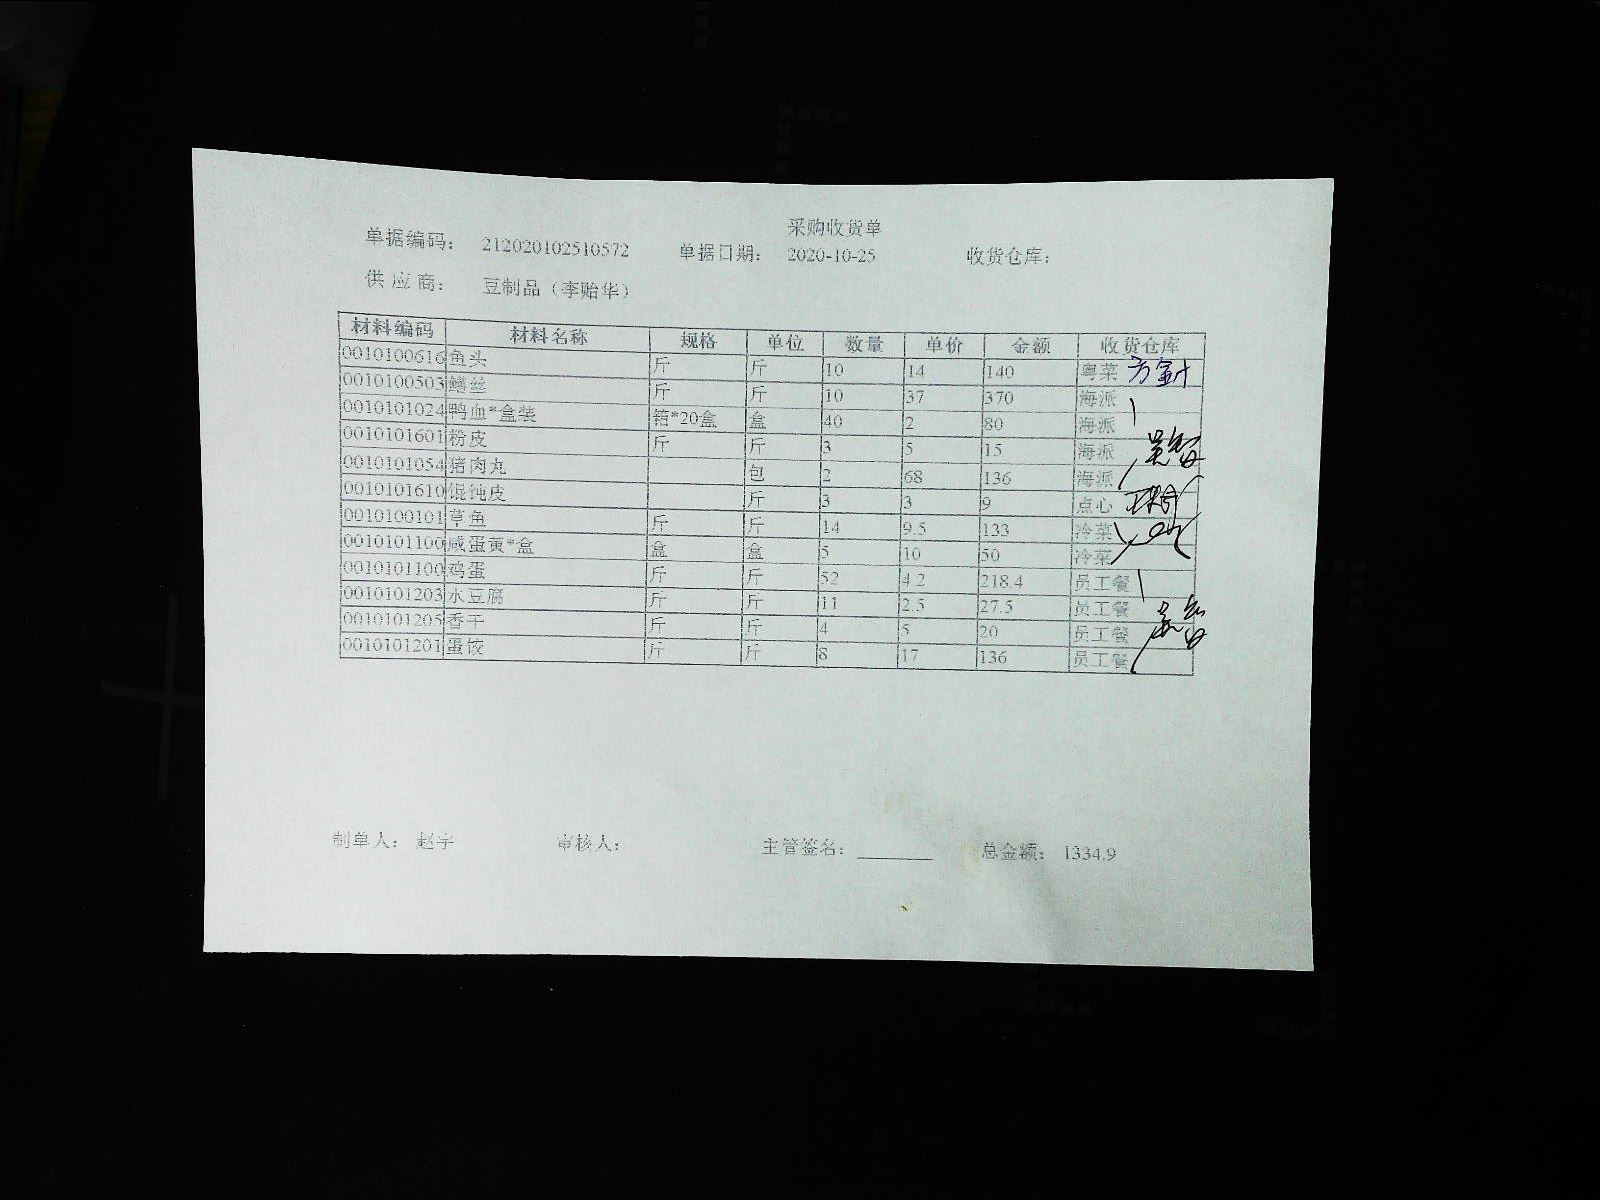 采购收货单
单据编码： 212020102510572 单据日期： 2020-10-25 收货仓库：
供 应 商： 豆制品（李贻华）
材料编码 材料名称 规格 单位 数量 单价 金额 收货仓库
0010100616 鱼头 斤 斤 10 14 140 粤菜
0010100503 鳝丝 斤 斤 10 37 370 海派
0010101024 鸭血*盒装 箱*20盒 盒 40 2 80 海派
0010101601 粉皮 斤 斤 3 5 15 海派
0010101054 猪肉丸 包 2 68 136 海派
0010101610 馄饨皮 斤 3 3 9 点心
0010100101 草鱼 斤 斤 14 9.5 133 冷菜
0010101100 咸蛋黄*盒 盒 盒 5 10 50 冷菜
0010101100 鸡蛋 斤 斤 52 4.2 218.4 员工餐
0010101203 水豆腐 斤 斤 11 2.5 27.5 员工餐
0010101205 香干 斤 斤 4 5 20 员工餐
0010101201 蛋饺 斤 斤 8 17 136 员工餐
制单人： 赵宇 审核人： 主管签名： 总金额： 1334.9